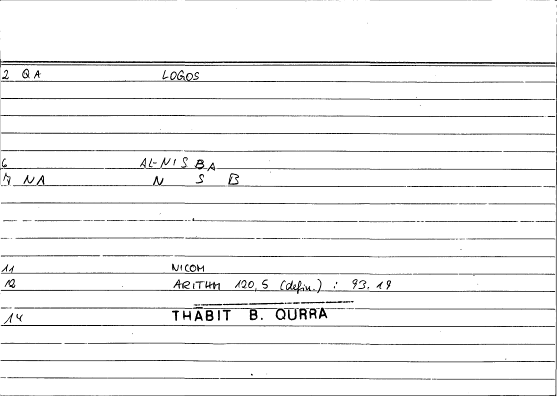 2 QA LOGOS
6 AL-NISBA
7 NA N S B
11 NICOM
12 ARITHM 120,5 (defin.) : 93.19
14 THĀBIT B. QURRA